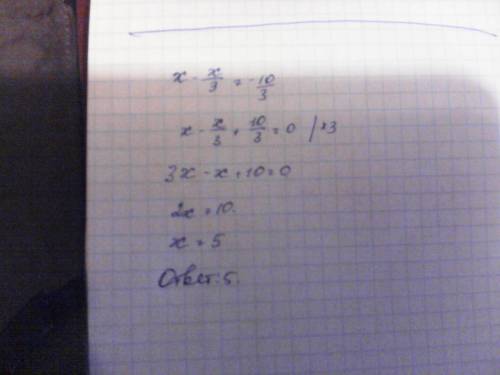 x - x/3 = -10/3
x - x/3 + 10/3 = 0 /*3
3x - x + 10 = 0
2x = 10.
x = 5
Ответ: 5.